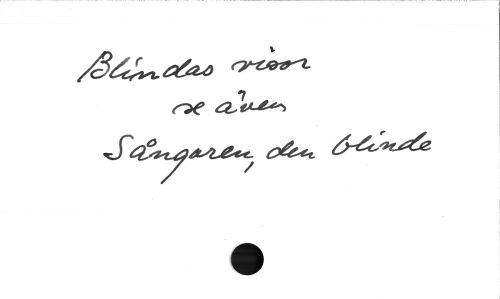 Blindas visor
se även
Sångaren, den blinde